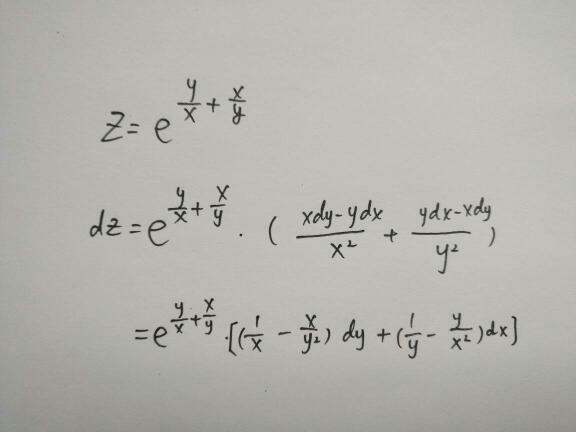 z = e^{\frac{y}{x} + \frac{x}{y}}
dz = e^{\frac{y}{x} + \frac{x}{y}} \cdot ( \frac{xdy - ydx}{x^2} + \frac{ydx - xdy}{y^2} )
= e^{\frac{y}{x} + \frac{x}{y}} \cdot [ ( \frac{1}{x} - \frac{x}{y^2} ) dy + ( \frac{1}{y} - \frac{y}{x^2} ) dx ]